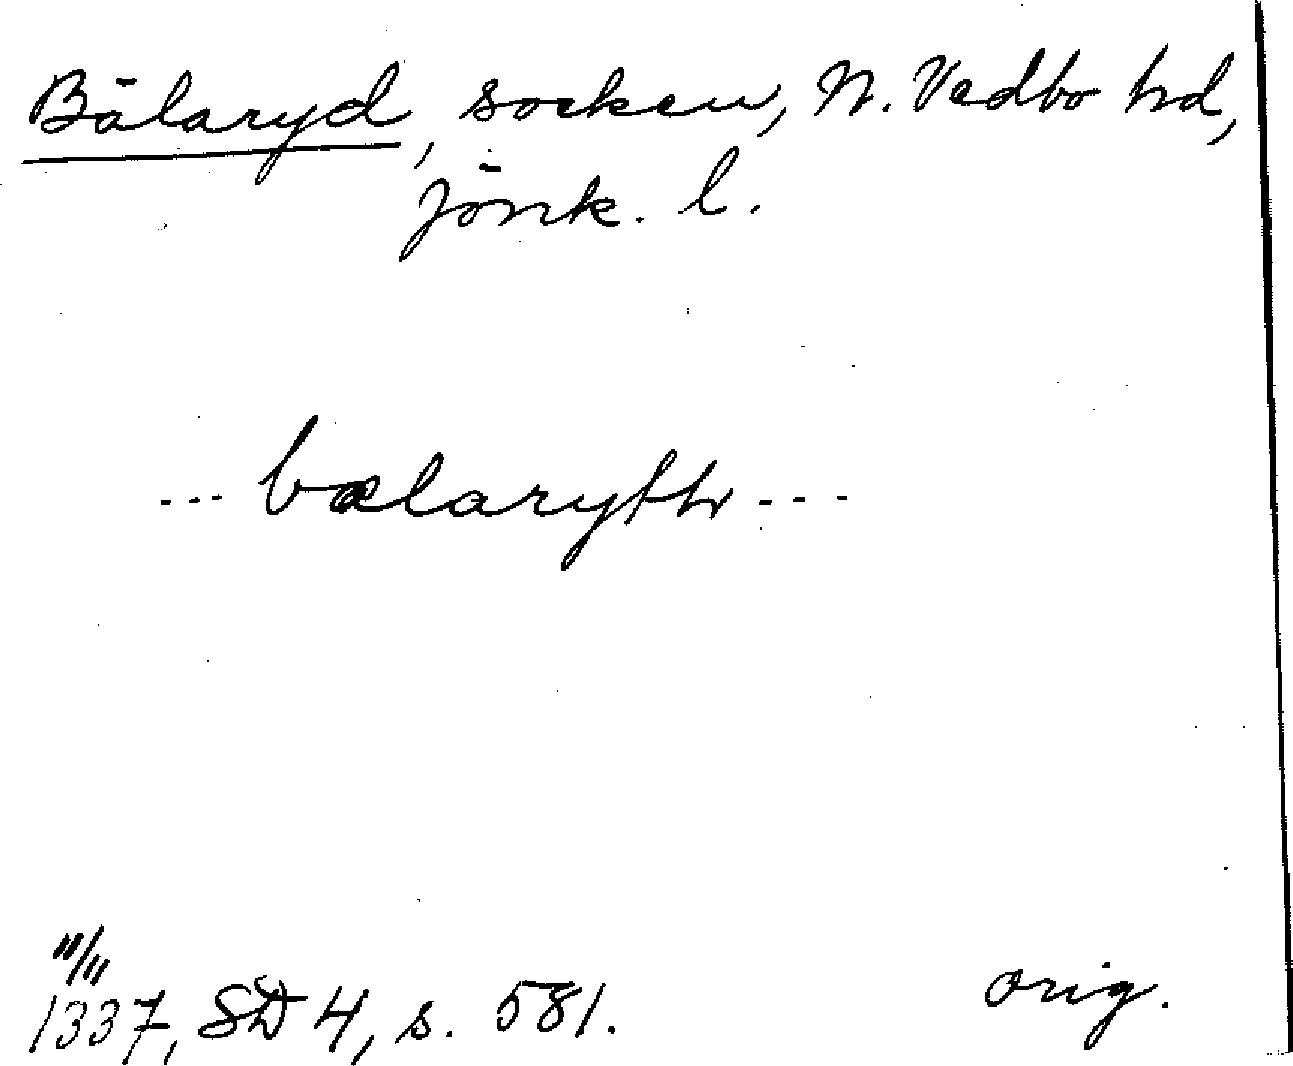 Bälaryd, socken, N. Vedbo hd,
Jönk. l.
--- bælaryth ---
11/11
1337, SD 4, s. 581. orig.